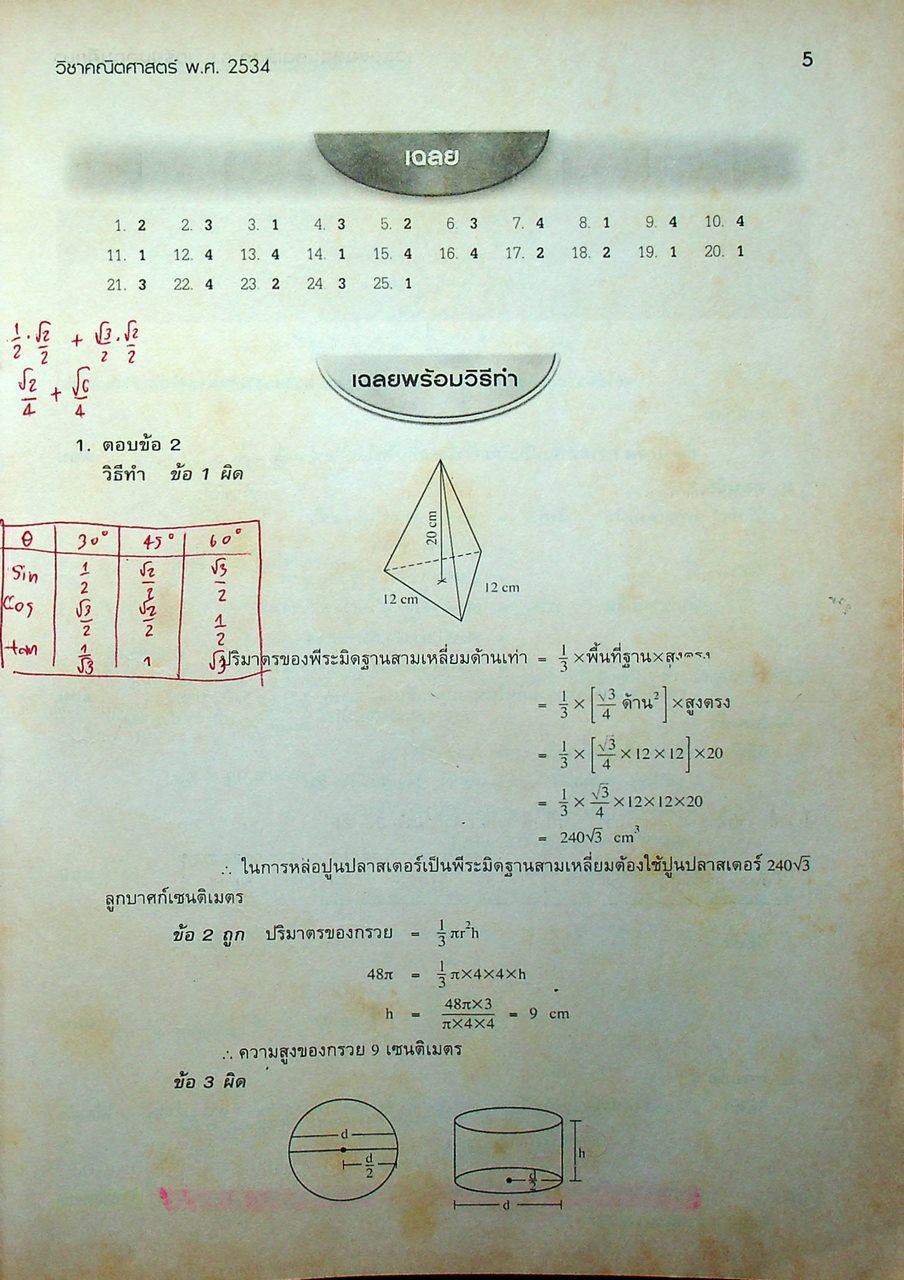 วิชาคณิตศาสตร์ พ.ศ. 2534
5
เฉลย
1. 2 2. 3 3. 1 4. 3 5. 2 6. 3 7. 4 8. 1 9. 4 10. 4
11. 1 12. 4 13. 4 14. 1 15. 4 16. 4 17. 2 18. 2 19. 1 20. 1
21. 3 22. 4 23. 2 24. 3 25. 1
1/2 · √2/2 + √3/2 · √2/2
√2/4 + √6/4
เฉลยพร้อมวิธีทำ
1. ตอบข้อ 2
วิธีทำ ข้อ 1 ผิด
20 cm
12 cm
12 cm
θ 30° 45° 60°
Sin 1/2 √2/2 √3/2
Cos √3/2 √2/2 1/2
tan 1/√3 1 √3
ปริมาตรของพีระมิดฐานสามเหลี่ยมด้านเท่า = 1/3 ×พื้นที่ฐาน×สูงตรง
= 1/3 × [√3/4 ด้าน²] ×สูงตรง
= 1/3 × [√3/4 ×12×12] ×20
= 1/3 × √3/4 ×12×12×20
= 240√3 cm³
∴ ในการหล่อปูนปลาสเตอร์เป็นพีระมิดฐานสามเหลี่ยมต้องใช้ปูนปลาสเตอร์ 240√3
ลูกบาศก์เซนติเมตร
ข้อ 2 ถูก ปริมาตรของกรวย = 1/3 πr²h
48π = 1/3 π×4×4×h
h = 48π×3/π×4×4 = 9 cm
∴ ความสูงของกรวย 9 เซนติเมตร
ข้อ 3 ผิด
d
d/2
h
d/2
d